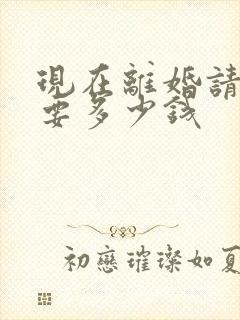 現在離婚請
要多少錢
初戀璀璨如夏